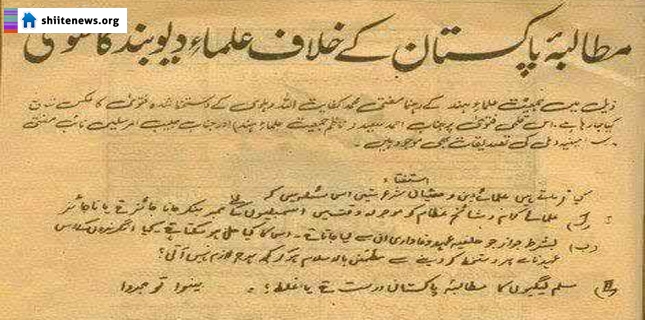 shiitenews.org
مطالبۂ پاکستان کے خلاف علماءِ دیوبند کا فتویٰ
ذیل میں جمعیت علماءِ ہند کے رہنما مفتی محمد کفایت اللہ دہلوی کے دستخط شدہ فتویٰ کا عکس شائع
کیا جا رہا ہے۔ اس قلمی فتویٰ پر جناب احمد سعید (ناظم جمعیت علماءِ ہند) اور جناب حبیب المرسلین نائب مفتی
کی تصدیقات بھی موجود ہیں۔
استفتاء
کیا فرماتے ہیں علمائے دین و مفتیان شرع متین اس مسئلہ میں کہ
علمائے کرام و مشائخ عظام کو موجودہ اسمبلیوں کا ممبر بنکر جانا جائز ہے یا ناجائز
(ب) بشرط جواز جو حلفیہ عہد وفاداری ان سے لیا جاتا ہے۔ اس کا کیا حل ہو سکتا ہے۔ کیا انگریزوں کے اس
عہد نامے پر دستخط کر دینے سے
مسلم لیگیوں کا مطالبۂ پاکستان درست ہے یا غلط؟ ۔ بینوا توجروا